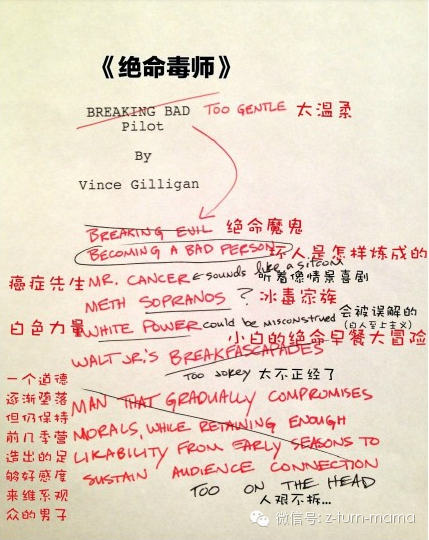 《绝命毒师》
BREAKING BAD TOO GENTLE 太温柔
Pilot
By
Vince Gilligan
BREAKING EVIL 绝命魔鬼
BECOMING A BAD PERSON 坏人是怎样炼成的
癌症先生 MR. CANCER ← sounds like a sitcom 听着像情景喜剧
METH SOPRANOS ? 冰毒家族
白色力量 WHITE POWER could be misconstrued 会被误解的
(白人至上主义)
小白的绝命早餐大冒险
WALT JR.'S BREAKFASCAPADES
TOO JOKEY 太不正经了
一个道德
逐渐堕落
但仍保持
前几季营
造出的足
够好感度
来维系观
众的男子
MAN THAT GRADUALLY COMPROMISES
MORALS, WHILE RETAINING ENOUGH
LIKABILITY FROM EARLY SEASONS TO
SUSTAIN AUDIENCE CONNECTION
TOO ON THE HEAD
人艰不拆...
微信号: z-turn-mama